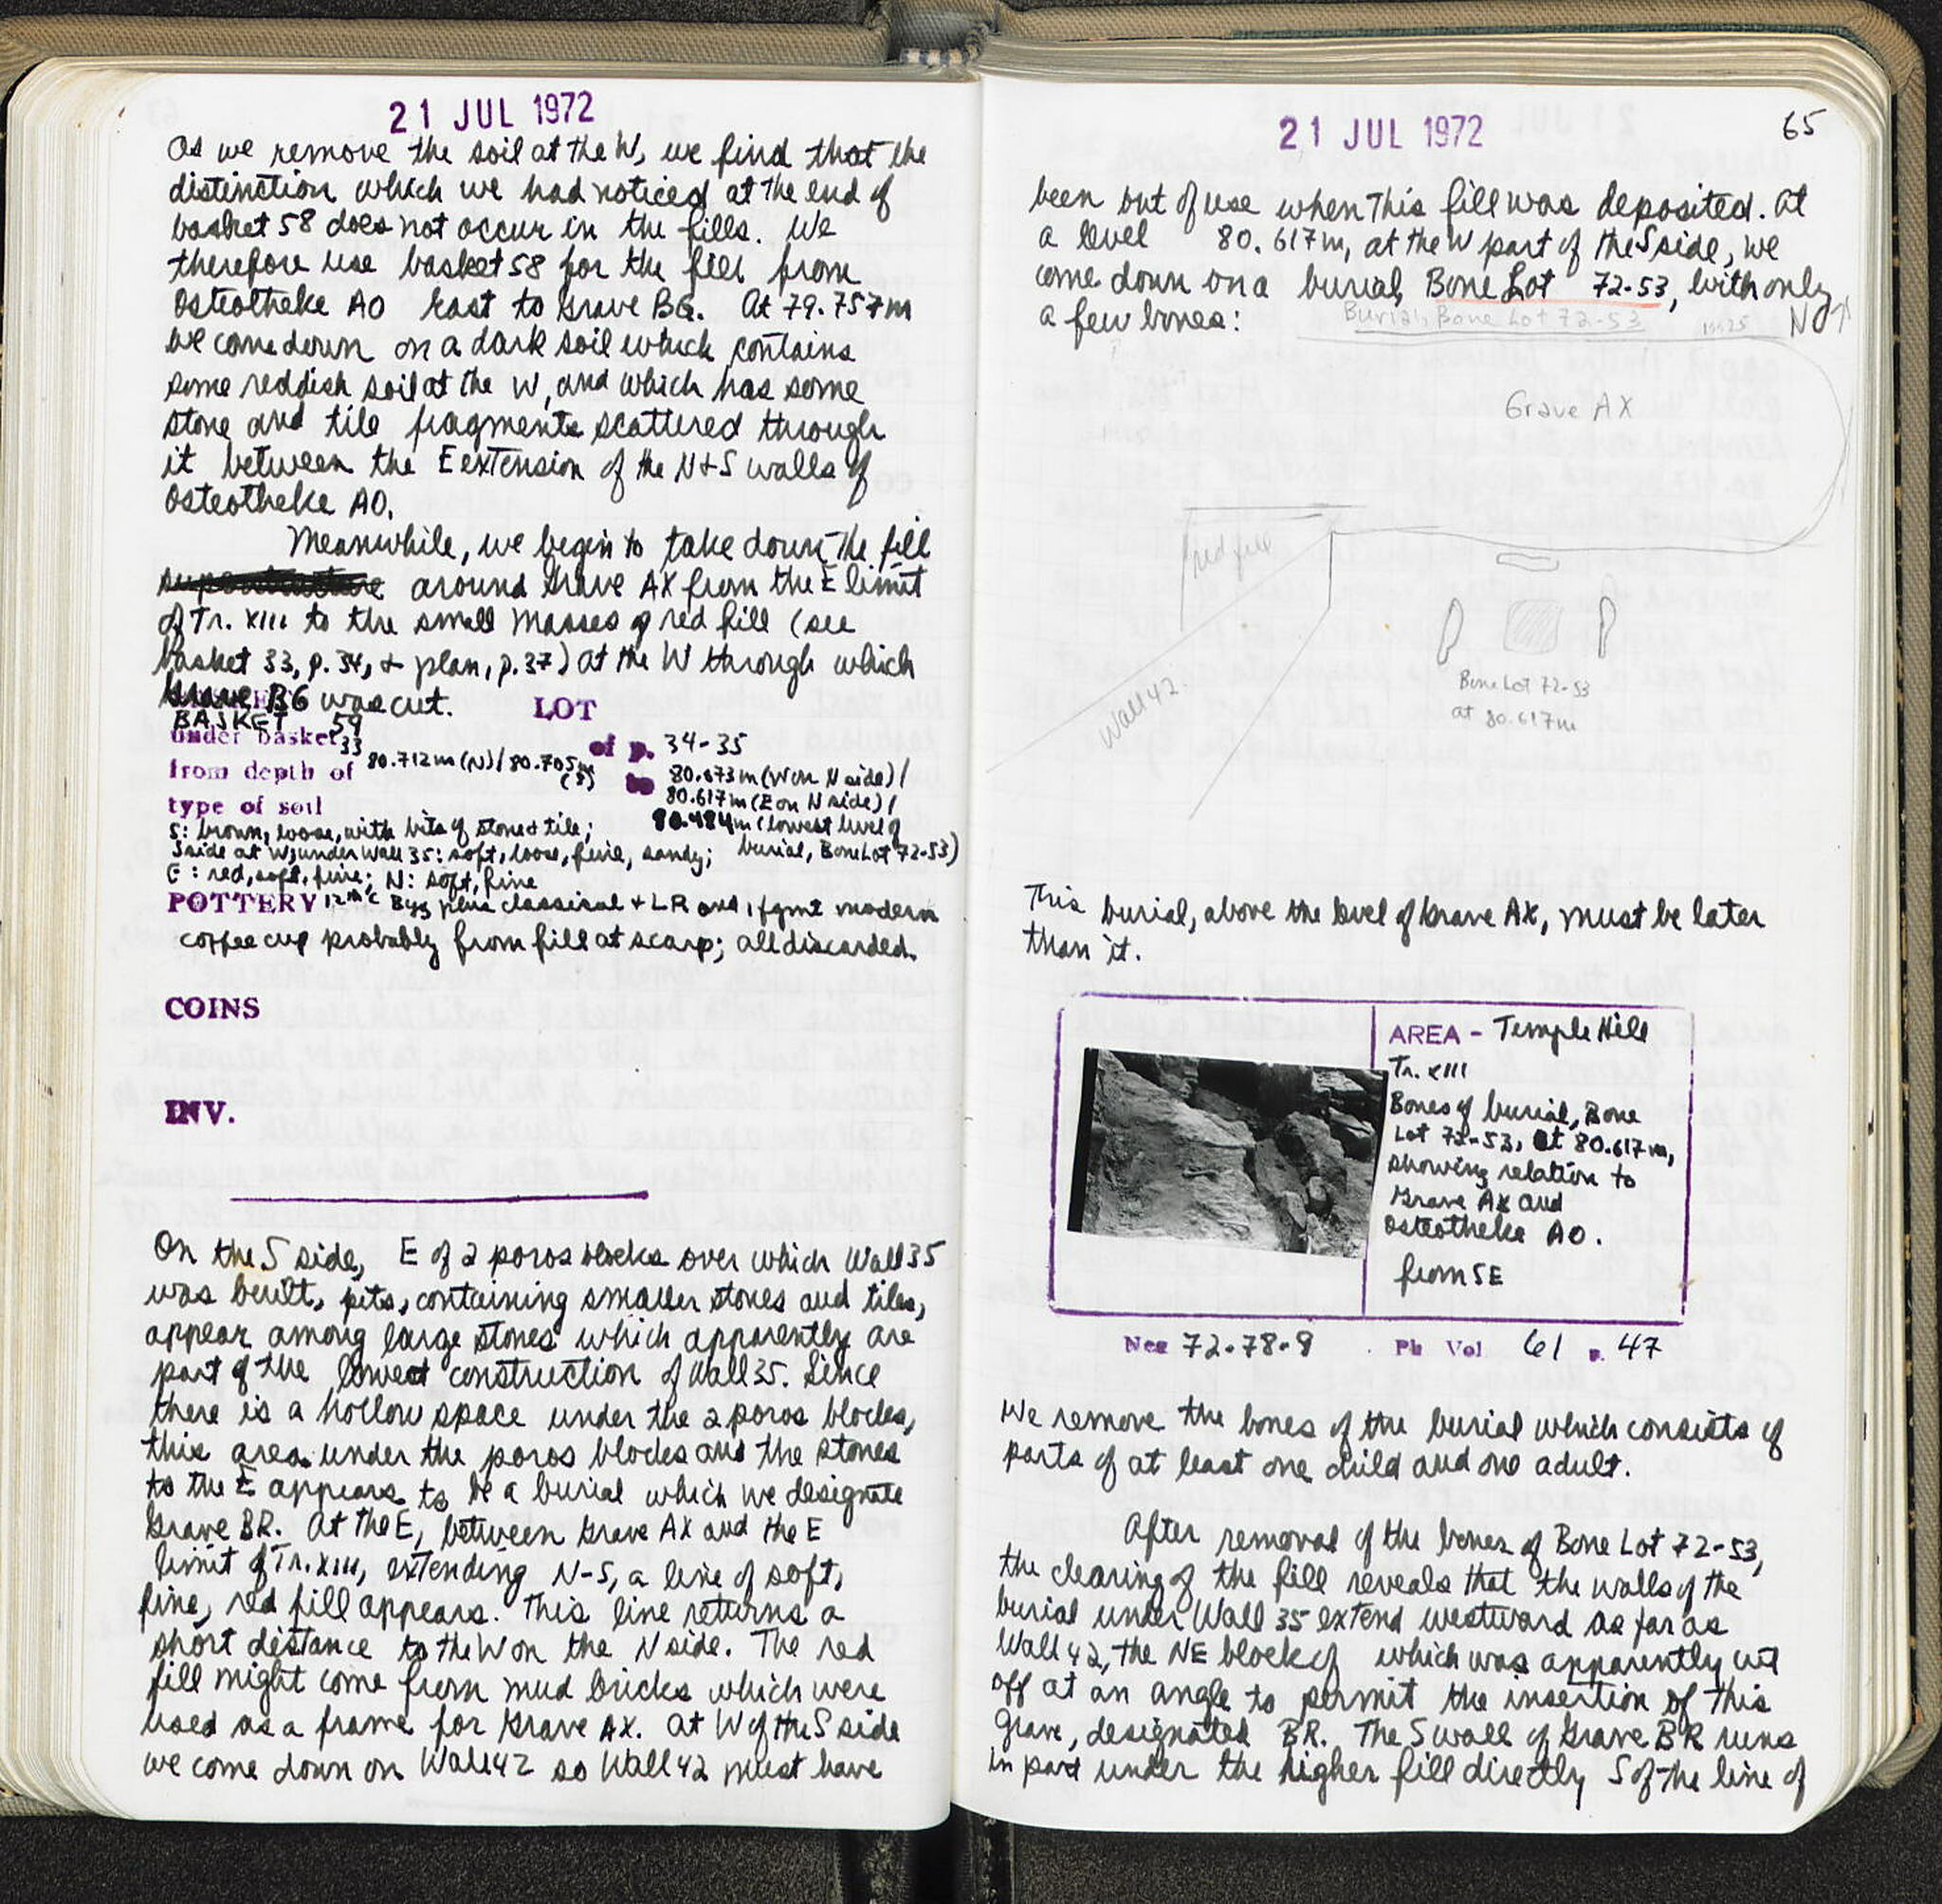 21 JUL 1972
As we remove the soil at the W, we find that the
distinction which we had noticed at the end of
basket 58 does not occur in the fills. We
therefore use basket 58 for the fill from
Osteotheke AO East to Grave BG. At 79.757m
we come down on a dark soil which contains
some reddish soil at the W, and which has some
stone and tile fragments scattered through
it between the E extension of the N+S walls of
Osteotheke AO.
Meanwhile, we begin to take down the fill
around Grave AX from the E limit
of Tr. XIII to the small masses of red fill (see
basket 33, p. 34, + plan, p. 37) at the W through which
Grave BG was cut.
LOT
BASKET 59
under basket 33 of p. 34-35
from depth of 80.712m (N) / 80.705m (S) to 80.673m (W on N side) /
80.617m (E on N side) /
80.484m (lowest level of
burial, Bone Lot 72-53)
type of soil
S: brown, loose, with bits of stone + tile;
S side at W, under Wall 35: soft, loose, fine, sandy;
E: red, soft, fine; N: soft, fine
POTTERY 12th c Byz plus classical + LR and 1 fgmt modern
coffee cup probably from fill at scarp; all discarded.
COINS
INV.
On the S side, E of 2 poros blocks over which Wall 35
was built, pits, containing smaller stones and tiles,
appear among large stones which apparently are
part of the lowest construction of Wall 35. Since
there is a hollow space under the 2 poros blocks,
this area under the poros blocks and the stones
to the E appears to be a burial which we designate
Grave BR. At the E, between Grave AX and the E
limit of Tr. XIII, extending N-S, a line of soft,
fine, red fill appears. This line returns a
short distance to the W on the N side. The red
fill might come from mud bricks which were
used as a frame for Grave AX. At W of the S side
we come down on Wall 42 so Wall 42 must have
21 JUL 1972
65
been out of use when this fill was deposited. At
a level 80.617m, at the W part of the S side, we
come down on a burial, Bone Lot 72-53, with only
a few bones:
Burial, Bone Lot 72-53
N
Grave AX
red fill
Wall 42
Bone Lot 72-53
at 80.617m
This burial, above the level of Grave AX, must be later
than it.
AREA - Temple Hill
Tr. XIII
Bones of burial, Bone
Lot 72-53, at 80.617m,
showing relation to
Grave AX and
Osteotheke AO.
from SE
Neg 72-78-9 Ph Vol 61 p. 47
We remove the bones of the burial which consists of
parts of at least one child and one adult.
After removal of the bones of Bone Lot 72-53,
the clearing of the fill reveals that the walls of the
burial under Wall 35 extend westward as far as
Wall 42, the NE block of which was apparently cut
off at an angle to permit the insertion of this
Grave, designated BR. The S wall of Grave BR runs
in part under the higher fill directly S of the line of